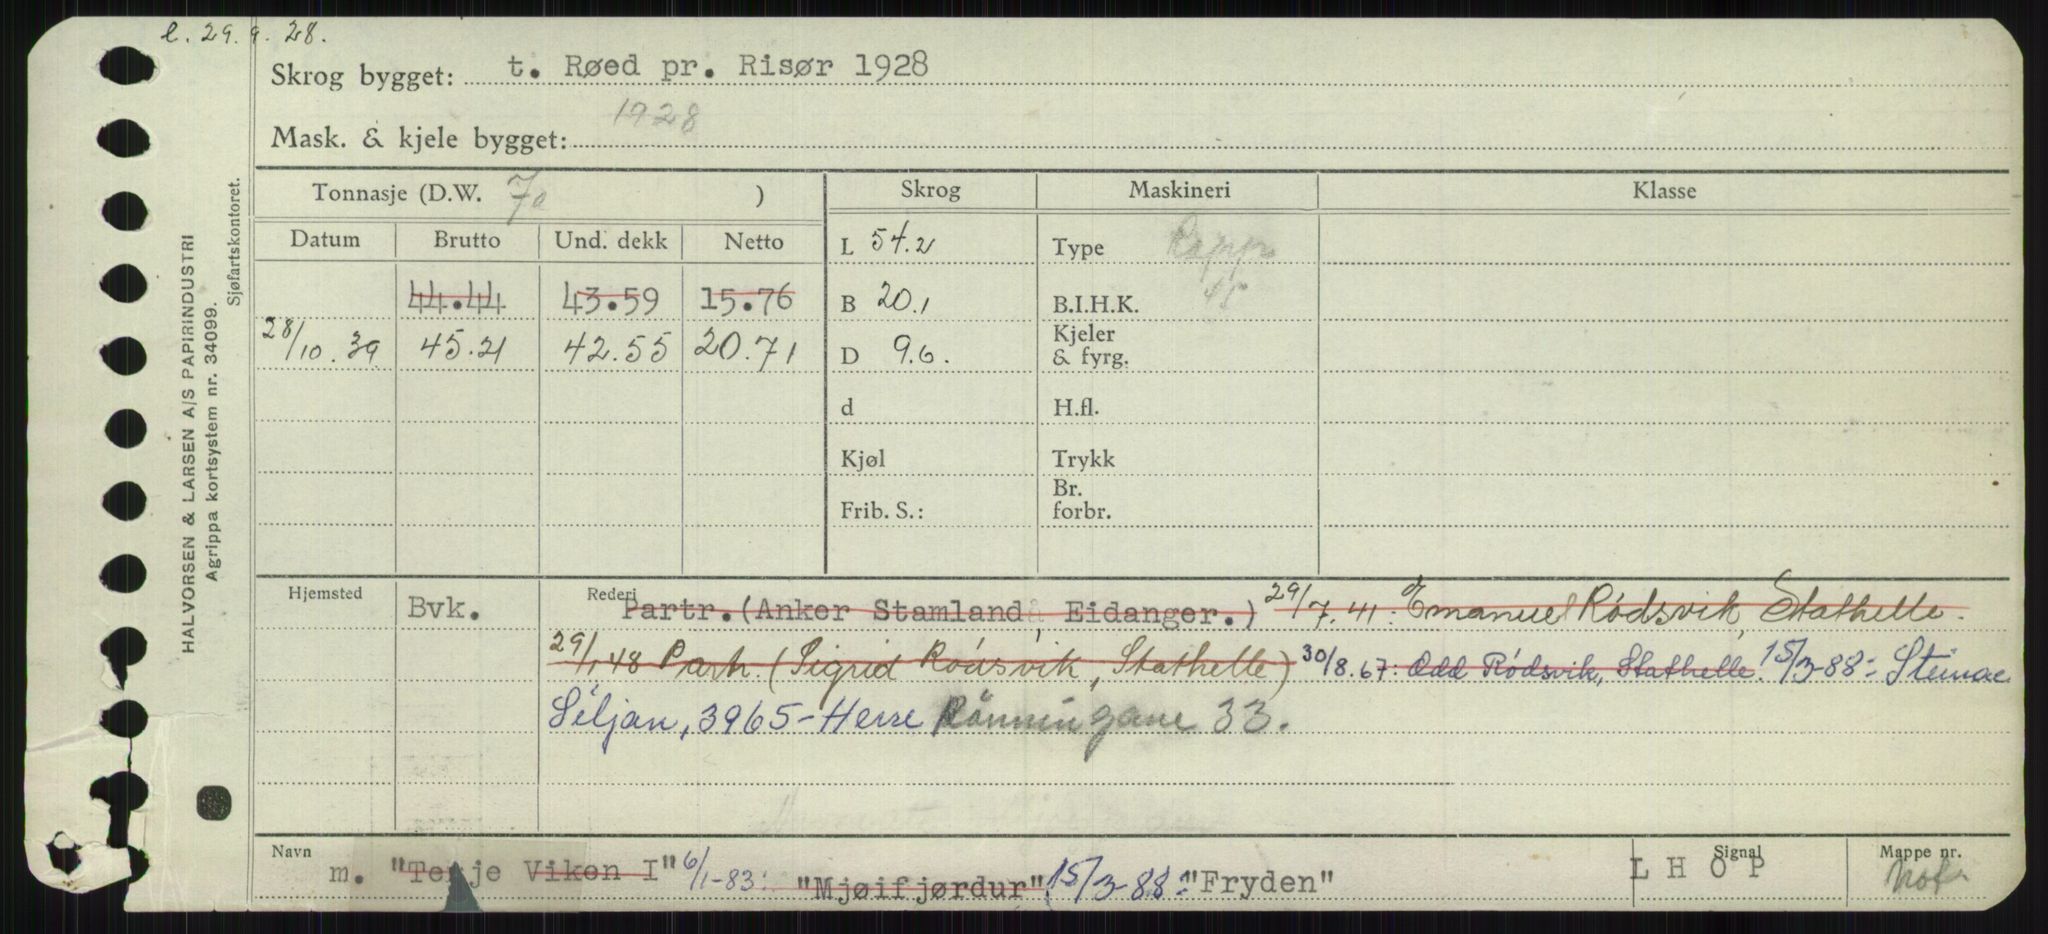 l. 29.9.28.
Skrog bygget: t. Røed pr. Risør 1928
Mask. & kjele bygget: 1928
Tonnasje (D.W. 70 )
Skrog
Maskineri
Klasse
Datum Brutto Und. dekk Netto
L 54.2
Type Rapp
44.44 43.59 15.76
B 20.1
B.I.H.K. 45
28/10.39 45.21 42.55 20.71
D 9.6.
Kjeler
& fyrg.
d
H.fl.
Kjøl
Trykk
Frib. S.:
Br.
forbr.
HALVORSEN & LARSEN A/S PAPIRINDUSTRI
Agrippa kortsystem nr. 34099.
Sjøfartskontoret.
Hjemsted Bvk.
Rederi Partr. (Anker Stamland, Eidanger.) 29/7.41: Emanuel Rödsvik, Stathelle.
29/1 48 Partr. (Sigrid Rödsvik, Stathelle) 30/8.67: Odd Rödsvik, Stathelle. 15/3-88: Steinar
Siljan, 3965-Herre Rönningane 33.
Navn m. "Terje Viken I" 6/1-83: "Mjøifjørdur" 15/3-88: "Fryden"
Signal L H O P
Mappe nr.